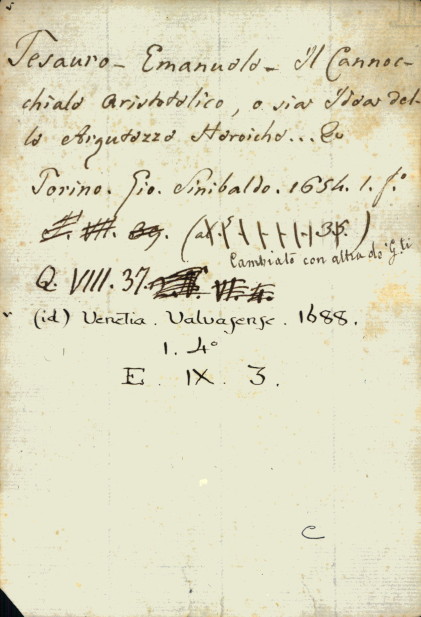 Tesauro - Emanuele - Il Cannoc-
chiale Aristotelico, o sia Idea del-
le Argutezze Heroiche... &c
Torino. Gio. Sinibaldo. 1654. 1. f.°
Cambiato con altra de' G.ti
Q. VIII. 37.
(id) Venetia. Valvasense. 1688.
1. 4°
E. IX. 3.
C